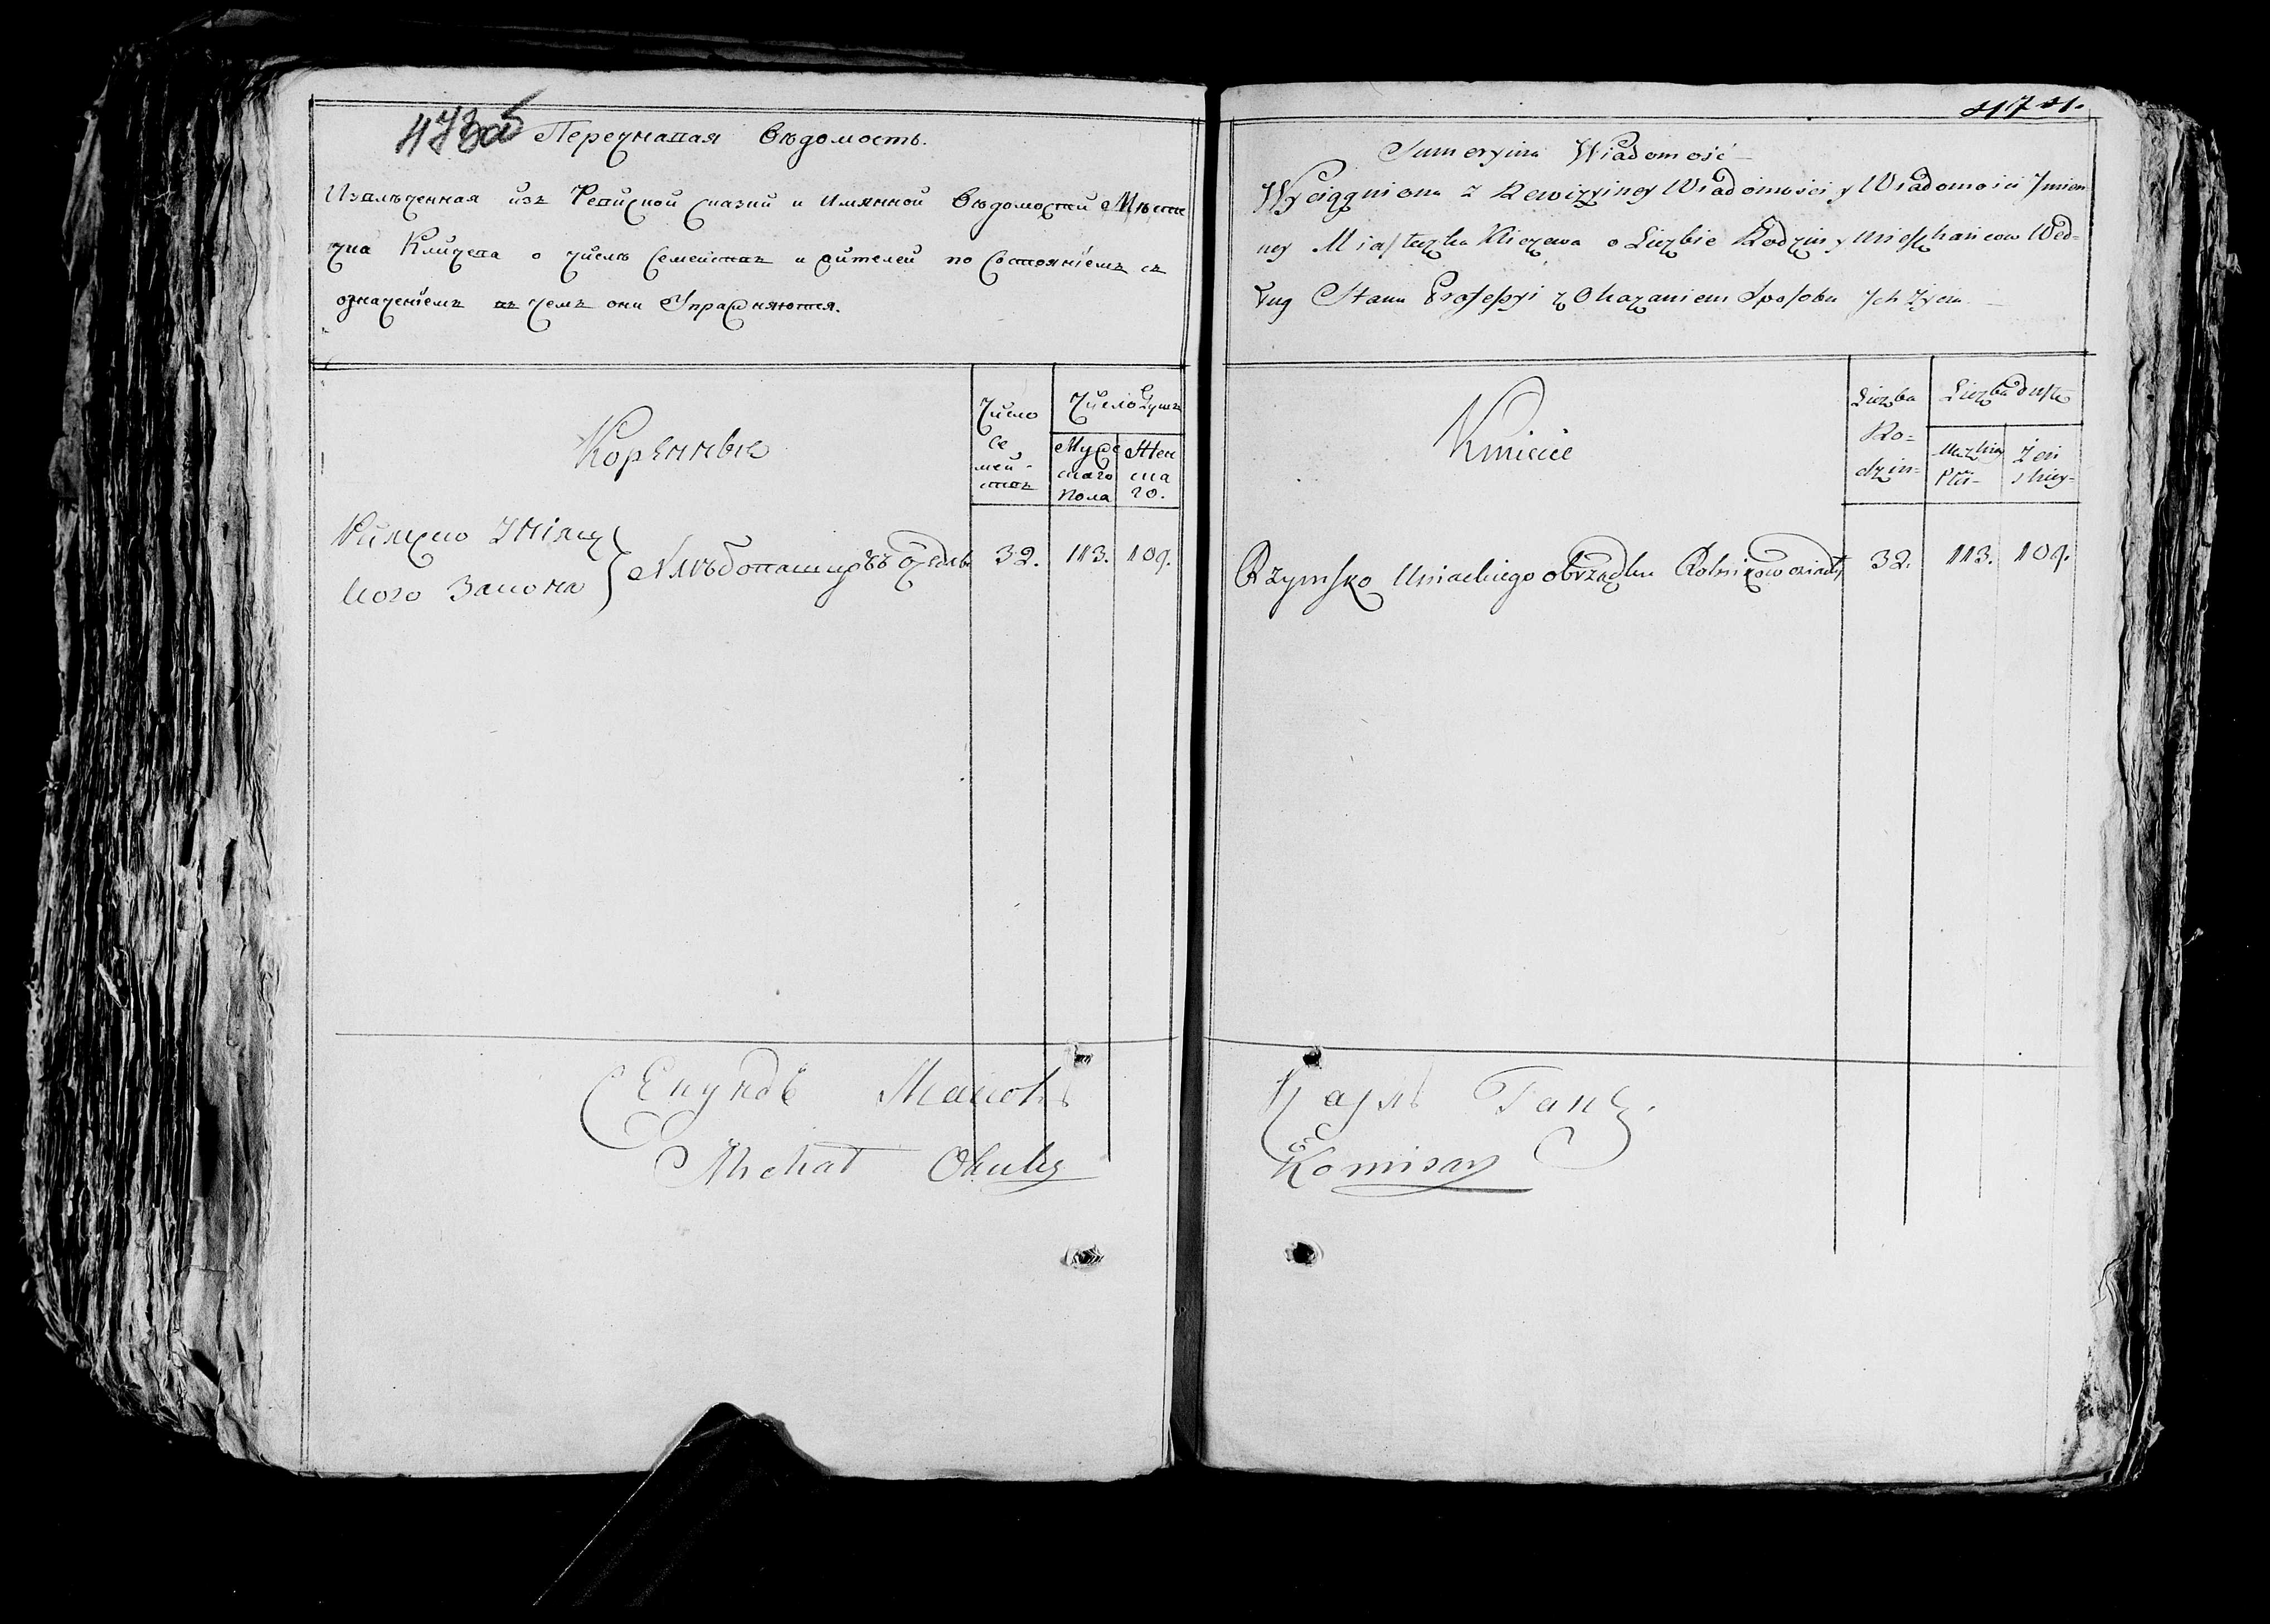 473об
Перечневая Вѣдомость.
Извлѣченная изъ Ревиской Сказки и Имянной Вѣдомостей Мѣсте
чка Кличева о числѣ Семействъ и жителей по Состояніемъ съ
означеніемъ въ чемъ они Упражняются.
Коренные
Число
се
мей-
ствъ
Число Душъ
Муже
скаго
Пола
Жен
ска
го.
Римско Уніац
кого Закона } Хлѣбопашцовъ
32. 113. 109.
Секунд Маіоръ
Michał
474.
Sumeryina Wiadomość
Wyciągniona z Rewizyiney Wiadomości y Wiadomości Jmien
ney Miasteczka Kliczewa o Liczbie Rodzin y Mieszkańcow Wed=
ług Stanu Professyi z Okazaniem Sposobu Jch Życia
Kmiecie
Liczba
Ro=
dzin=
Liczba dusz
Męzkiey
Płci-
Żeń
skiey-
Rzymsko Uniackiego obrządku Rolnikow osiadł
32. 113. 109.
Карль Ганъ.
Komisarz